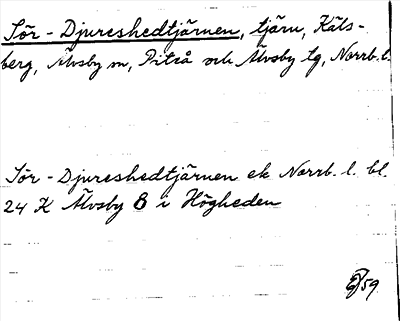 Sör-Djureshedtjärnen, tjärn, Käls-
berg, Älvsby sn, Piteå och Älvsby tg, Norrb. l.
Sör-Djureshedtjärnen ek Norrb. l. bl.
24 K Älvsby 8 i Högheden
59